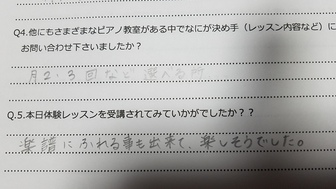 Q4.他にもさまざまなピアノ教室がある中でなにが決め手（レッスン内容など）に
お問い合わせ下さいましたか？
月2、3回など選べる所
Q.5.本日体験レッスンを受講されてみていかがでしたか？？
楽譜にふれる事も出来て、楽しそうでした。